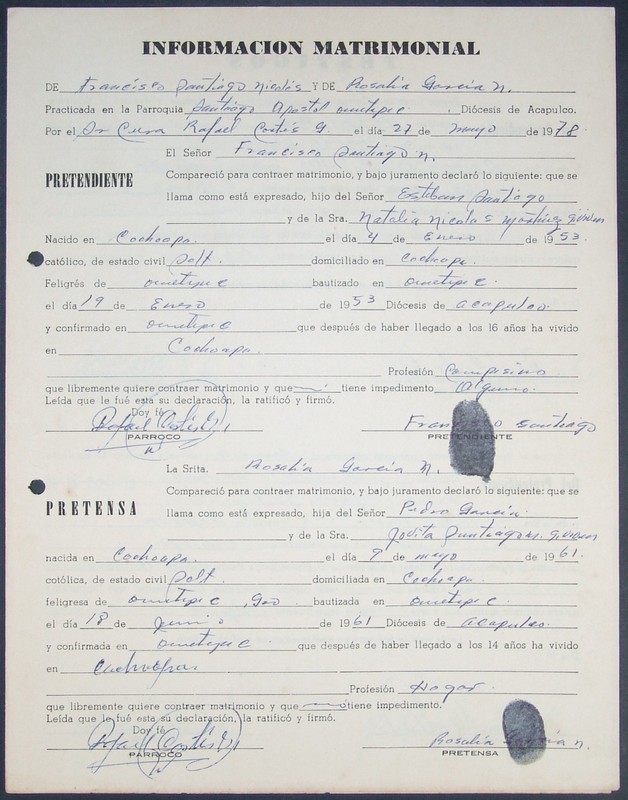 INFORMACION MATRIMONIAL
DE Francisco Santiago Nicolás Y DE Rosalía García N.
Practicada en la Parroquia Santiago Apostol Ometepec. Diócesis de Acapulco.
Por el Sr Cura Rafael Cortés G. el día 27 de mayo de 1978.
El Señor Francisco Santiago N.
PRETENDIENTE
Compareció para contraer matrimonio, y bajo juramento declaró lo siguiente: que se
llama como está expresado, hijo del Señor Esteban Santiago
y de la Sra. Natalia Nicolas Martínez
Nacido en Cochoapa. el día 4 de Enero de 1953.
católico, de estado civil Solt. domiciliado en Cochoapa.
Feligrés de Ometepec bautizado en Ometepec.
el día 19 de Enero de 1953 Diócesis de Acapulco.
y confirmado en Ometepec que después de haber llegado a los 16 años ha vivido
en Cochoapa.
Profesión Campesino.
que libremente quiere contraer matrimonio y que ni tiene impedimento Alguno.
Leída que le fué esta su declaración, la ratificó y firmó.
Doy fé
PARROCO
Francisco Santiago
PRETENDIENTE
La Srita. Rosalía García N.
PRETENSA
Compareció para contraer matrimonio, y bajo juramento declaró lo siguiente: que se
llama como está expresado, hijo del Señor Pedro García.
y de la Sra.
nacida en Cochoapa. el día 9 de mayo de 1961.
católica, de estado civil Solt. domiciliada en Cochoapa.
feligresa de Ometepec, Gro bautizada en Ometepec.
el día 18 de Junio de 1961 Diócesis de Acapulco.
y confirmada en Ometepec que después de haber llegado a los 14 años ha vivido
en Cochoapa.
Profesión Hogar.
que libremente quiere contraer matrimonio y que tiene impedimento.
Leída que le fué esta su declaración, la ratificó y firmó.
Doy fé
PARROCO
Rosalía García N.
PRETENSA